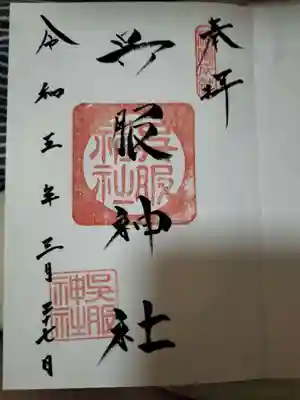 奉拝
呉服神社
呉服
神社
呉服
神社
令和五年三月二十七日